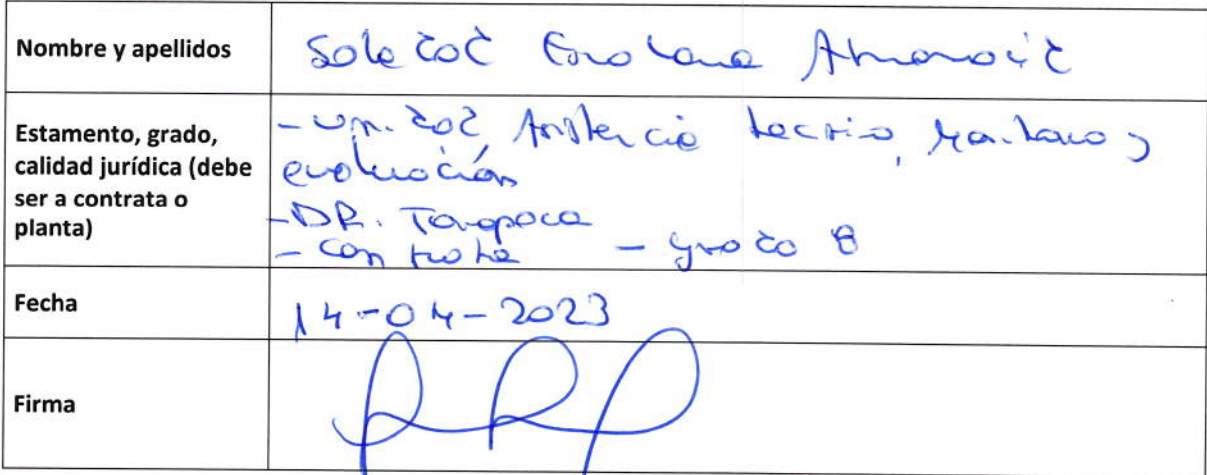 Nombre y apellidos
Soledad
Estamento, grado,
calidad jurídica (debe
ser a contrata o
planta)
- Unidad Asistencia Técnica, y
evaluación
- DR. Tarapaca
- Contrata - grado 8
Fecha
14-04-2023
Firma